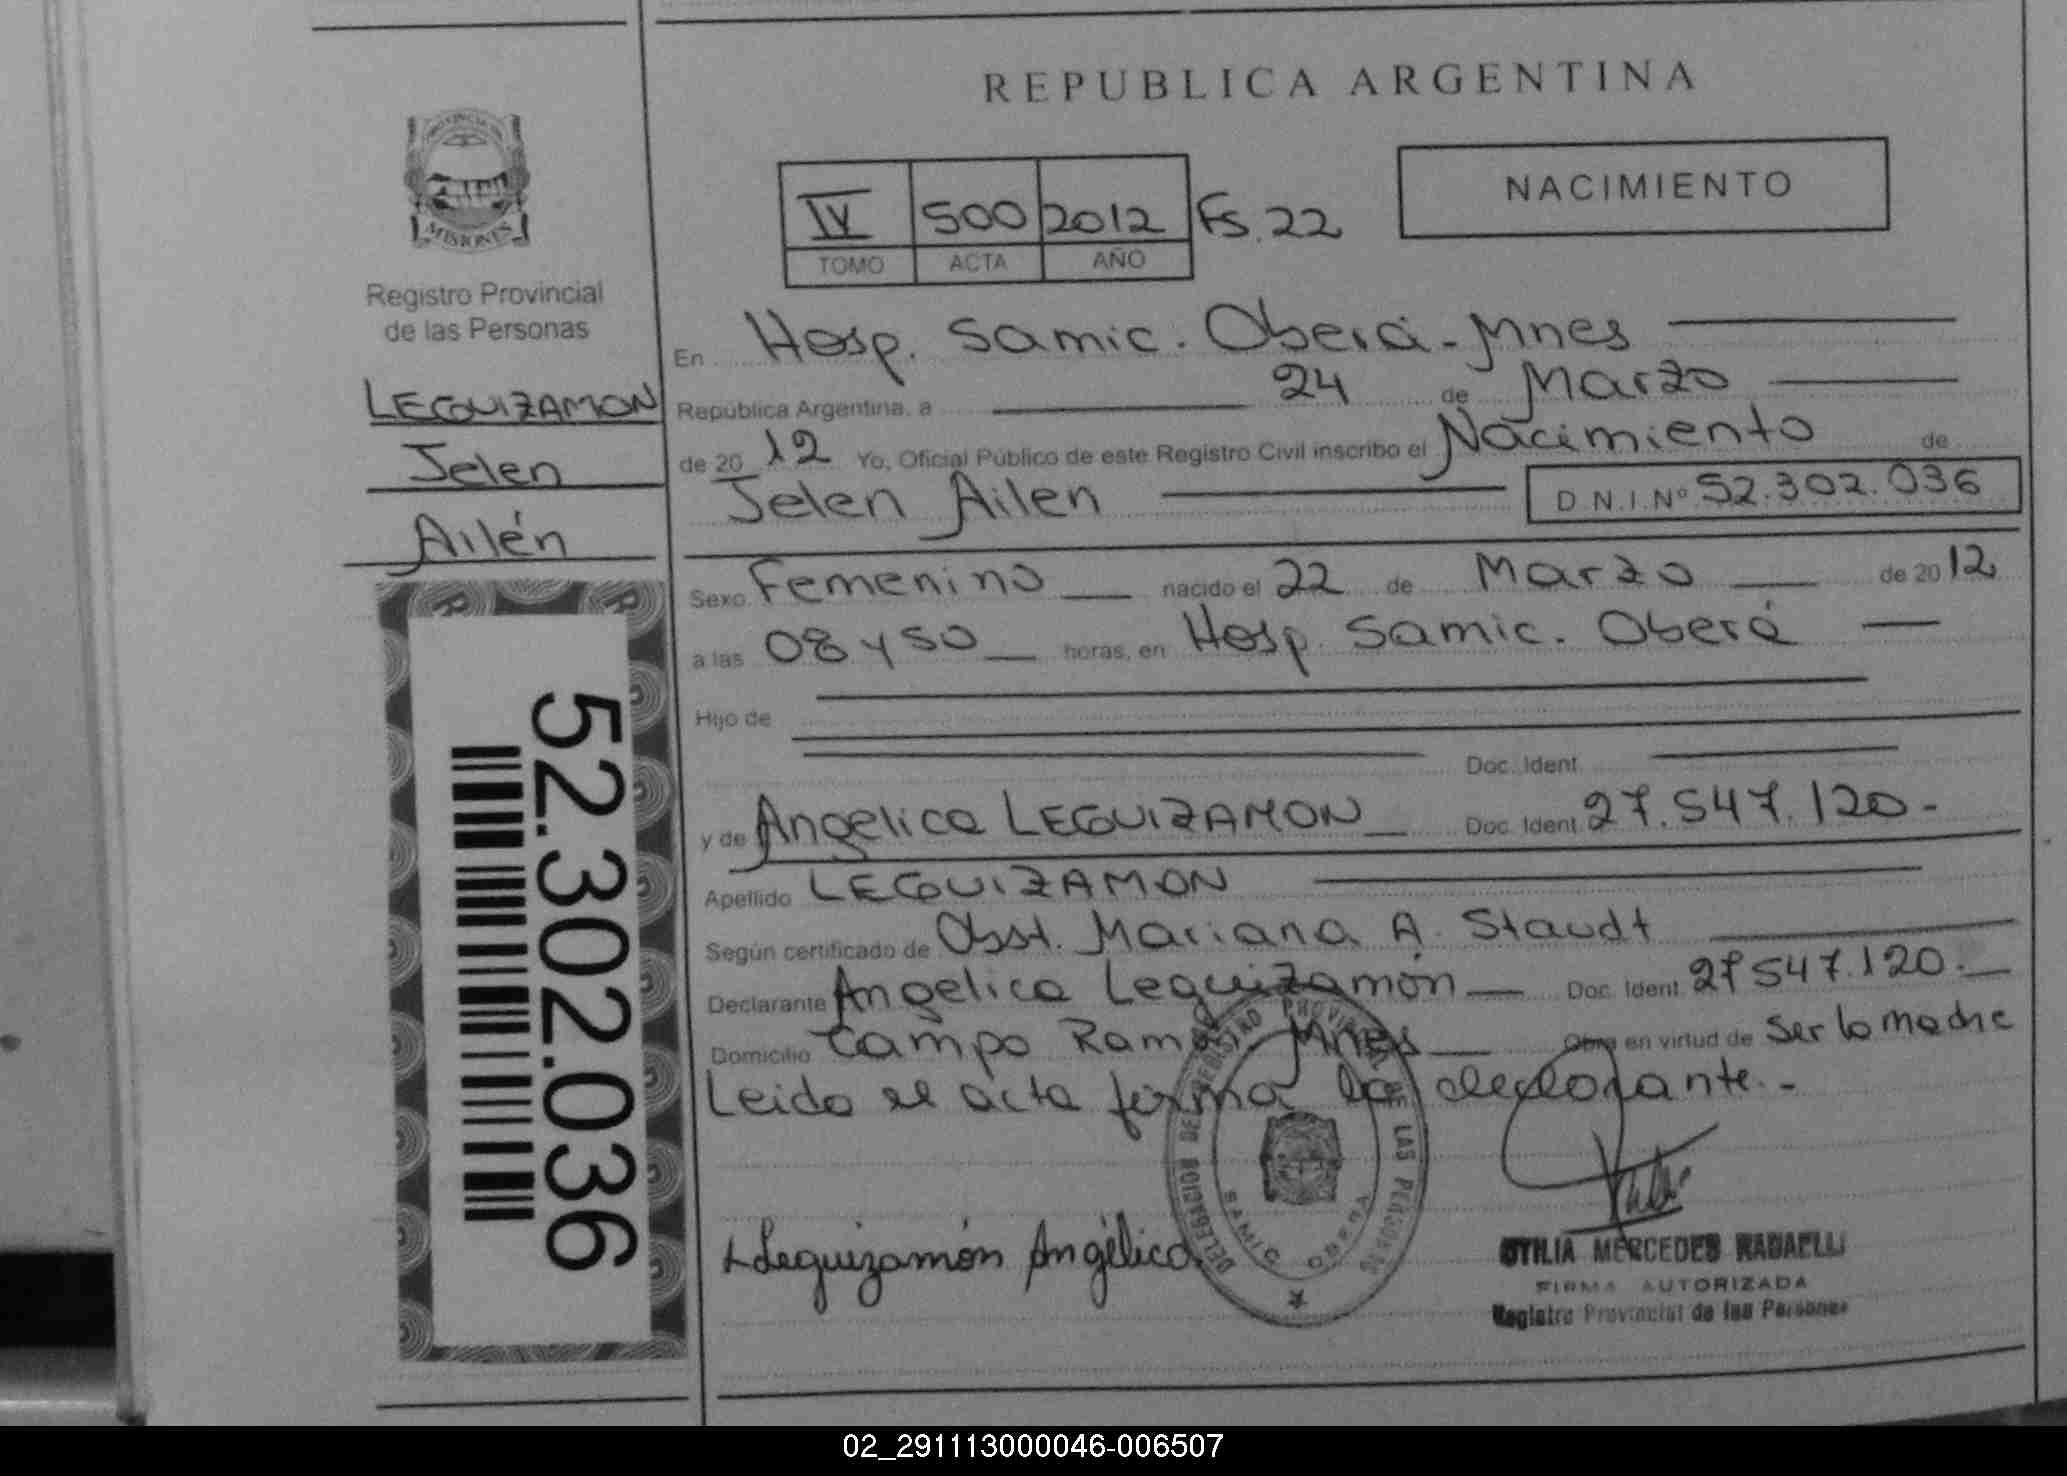 REPUBLICA ARGENTINA
PROVINCIA DE
MISIONES
Registro Provincial
de las Personas
LEGUIZAMON
Jelen
Ailén
52.302.036
IV 500 2012 Fs.22
TOMO ACTA AÑO
NACIMIENTO
En Hosp. Samic. Oberá - Mnes
República Argentina, a 24 de Marzo
de 2012 Yo, Oficial Público de este Registro Civil inscribo el Nacimiento de
Jelen Ailen D.N.I.Nº 52.302.036
Sexo Femenino nacido el 22 de Marzo de 2012
a las 08 y 50 horas, en Hosp. Samic. Oberá
Hijo de
Doc. Ident.
y de Angelica LEGUIZAMON Doc. Ident. 27.547.120.-
Apellido LEGUIZAMON
Según certificado de Obst. Mariana A. Staudt
Declarante Angelica Leguizamón Doc. Ident. 27547.120.
Domicilio Campo Ramón Mnes Obra en virtud de ser la madre
Leido el acta firma la declarante.-
Leguizamón Angélica
DELEGACION DE REGISTRO PROVINCIAL DE LAS PERSONAS
SAMIC OBERA
OTILIA MERCEDES RADAELLI
FIRMA AUTORIZADA
Registro Provincial de las Personas
02_291113000046-006507